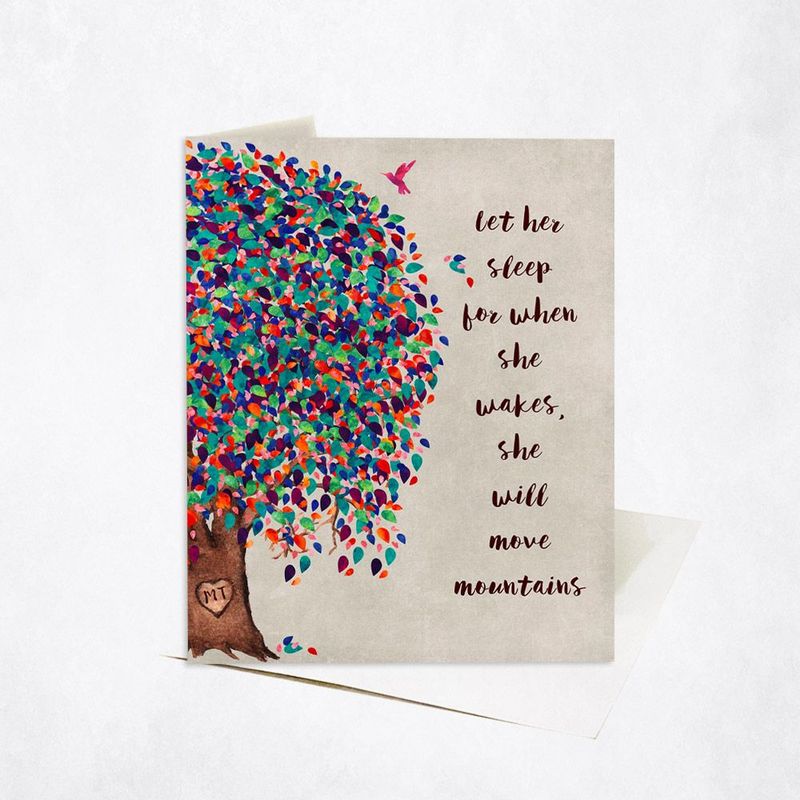 let her
sleep
for when
she
wakes,
she
will
move
mountains
MT